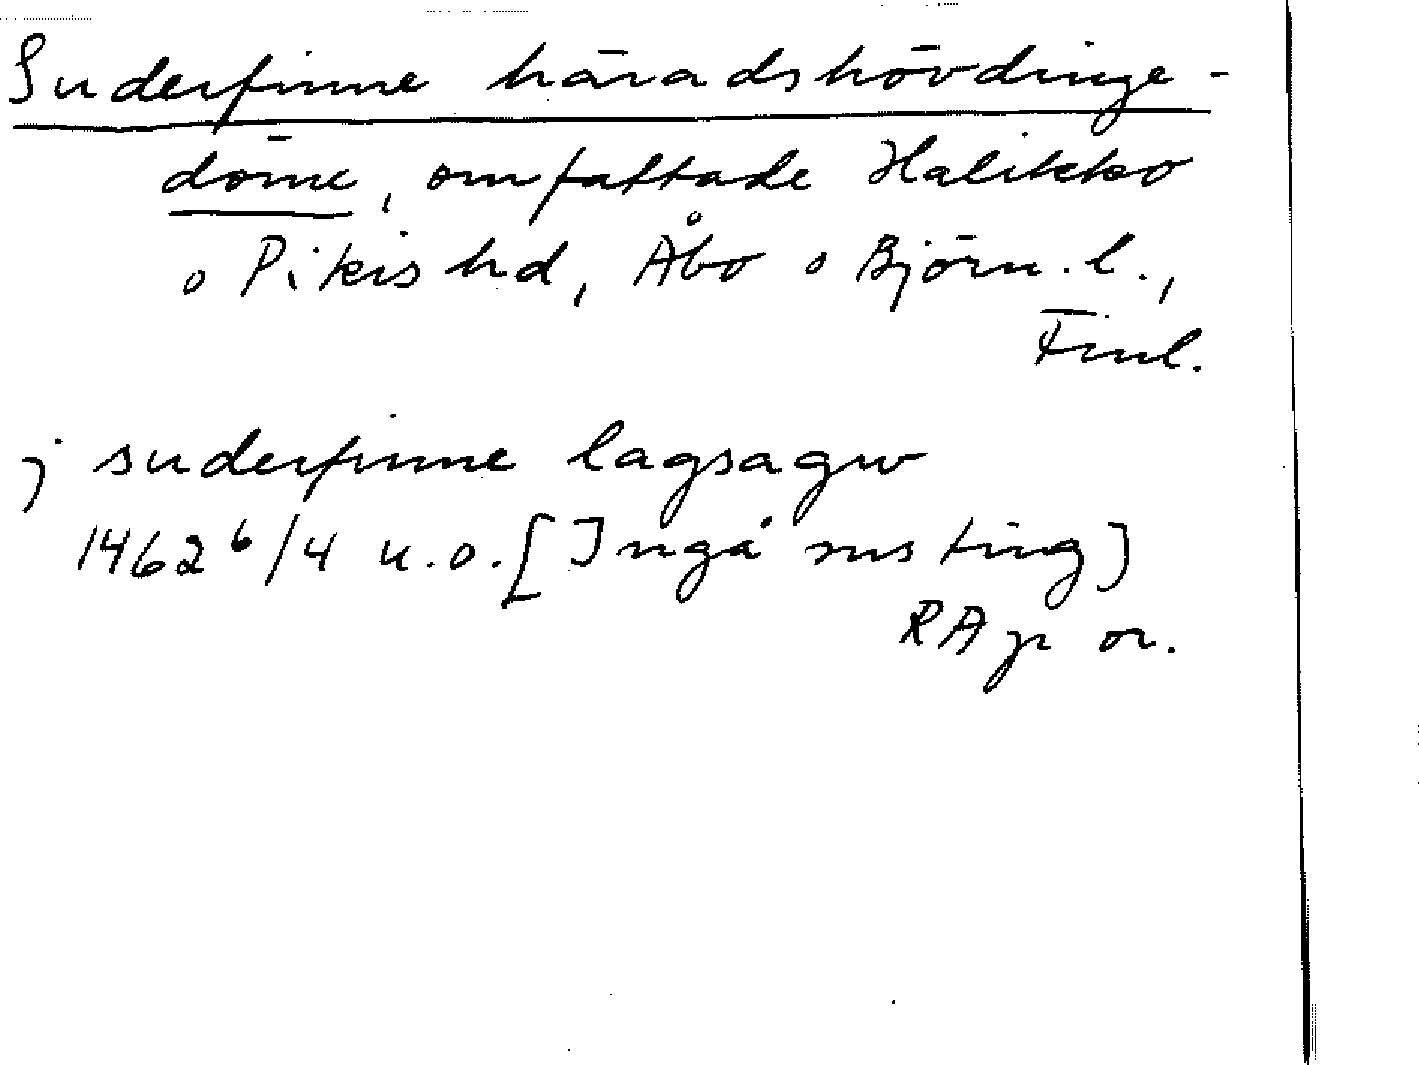 Suderfinne häradshövdinge-
döme, omfattade Halikko
o Pikis hd, Åbo o Björn. l.,
Finl.
j suderfinne lagsagw
1462 6/4 u.o. [Ingå sns ting]
RAp or.